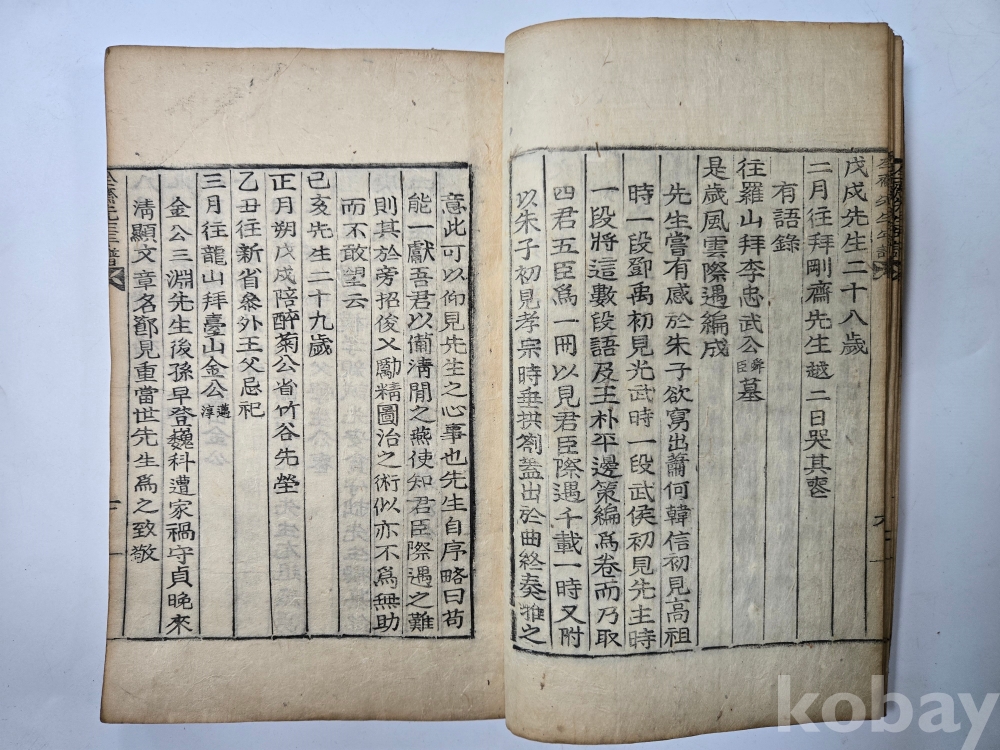 戊戌先生二十八歲
二月往拜剛齋先生越二日哭其喪
有語錄
往羅山拜李忠武公舜臣墓
是歲風雲際遇編成
先生嘗有感於朱子欲寫出蕭何韓信初見高祖
時一段鄧禹初見光武時一段武侯初見先主時
一段將這數段語及王朴平邊策編爲卷而乃取
四君五臣爲一冊以見君臣際遇千載一時又附
以朱子初見孝宗時垂拱劄蓋出於曲終奏雅之
意此可以仰見先生之心事也先生自序略曰苟
能一獻吾君以備淸閒之燕使知君臣際遇之難
則其於旁招俊乂勵精圖治之術似亦不爲無助
而不敢望云
己亥先生二十九歲
正月朔戊戌陪醉菊公省竹谷先塋
乙丑往新省叅外王父忌祀
三月往龍山拜臺山金公邁淳
金公三淵先生後孫早登巍科遭家禍守貞晩來
淸顯文章名節見重當世先生爲之致敬
kobay